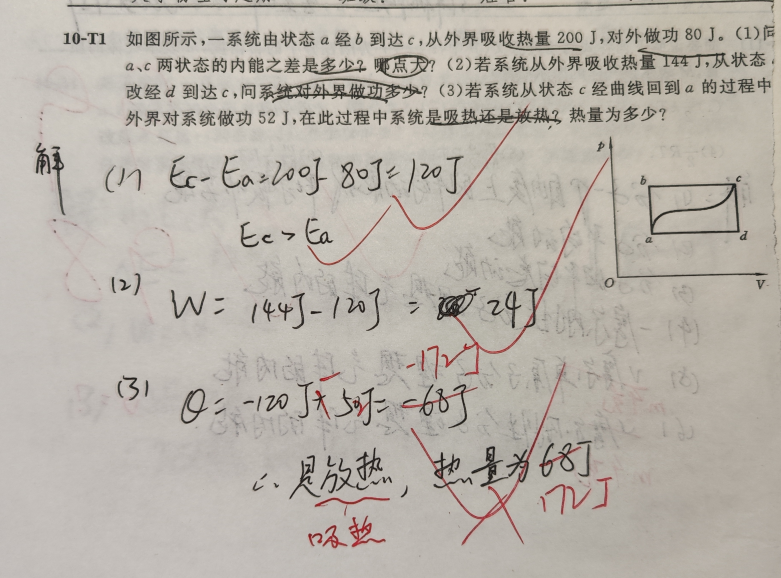 10-T1 如图所示,一系统由状态a经b到达c,从外界吸收热量200 J,对外做功80 J。(1)问
a、c两状态的内能之差是多少?哪点大?(2)若系统从外界吸收热量144 J,从状态
改经d到达c,问系统对外界做功多少?(3)若系统从状态c经曲线回到a的过程中
外界对系统做功52 J,在此过程中系统是吸热还是放热?热量为多少?
解
(1) Ec-Ea=200J-80J=120J
Ec>Ea
p
b c
a d
O V
(2) W=144J-120J= 24J
-172J
(3) Q=-120J+50J=-68J
∴是放热,热量为68J
172J
吸热